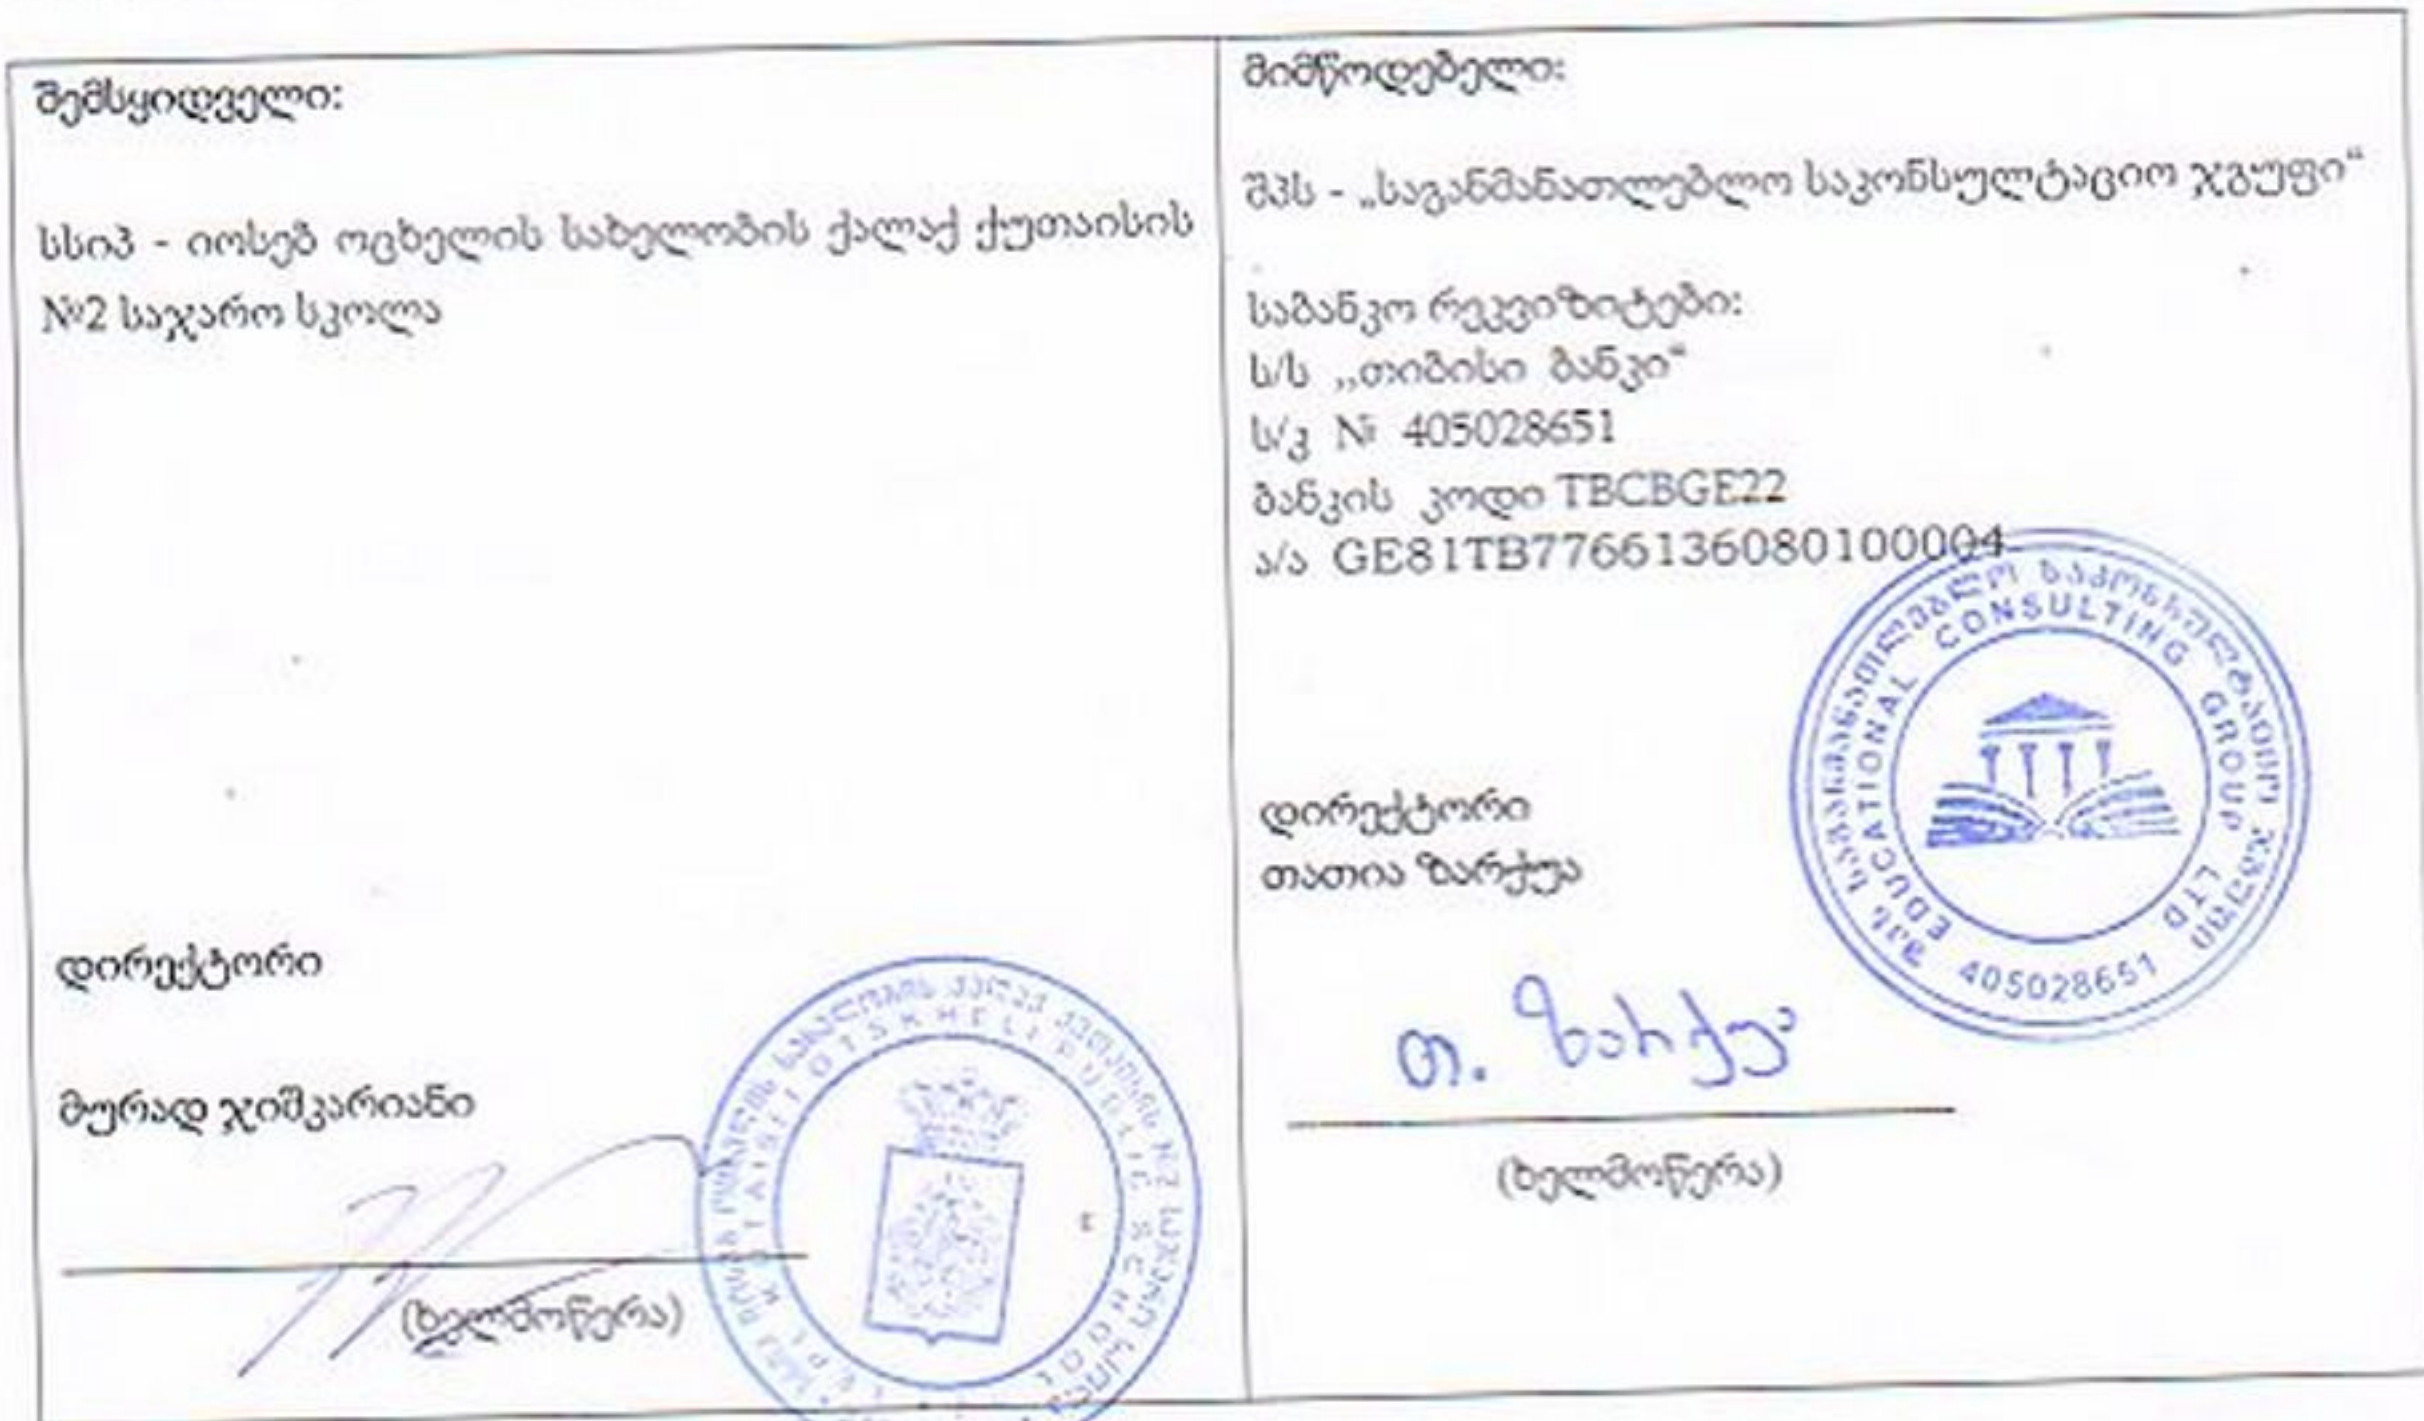 შემსყიდველი:
სსიპ - იოსებ ოცხელის სახელობის ქალაქ ქუთაისის
№2 საჯარო სკოლა
დირექტორი
მურად ჯიშკარიანი
(ხელმოწერა)
მიმწოდებელი:
შპს - „საგანმანათლებლო საკონსულტაციო ჯგუფი“
საბანკო რეკვიზიტები:
ს/ს ,,თიბისი ბანკი“
ს/კ № 405028651
ბანკის კოდი TBCBGE22
ა/ა GE81TB7766136080100004
დირექტორი
თათია ზარქუა
თ. ზარქუა
(ხელმოწერა)
შპს საგანმანათლებლო საკონსულტაციო ჯგუფი
EDUCATIONAL CONSULTING GROUP LTD
405028651
OTSKHELI PUBLIC SCHOOL